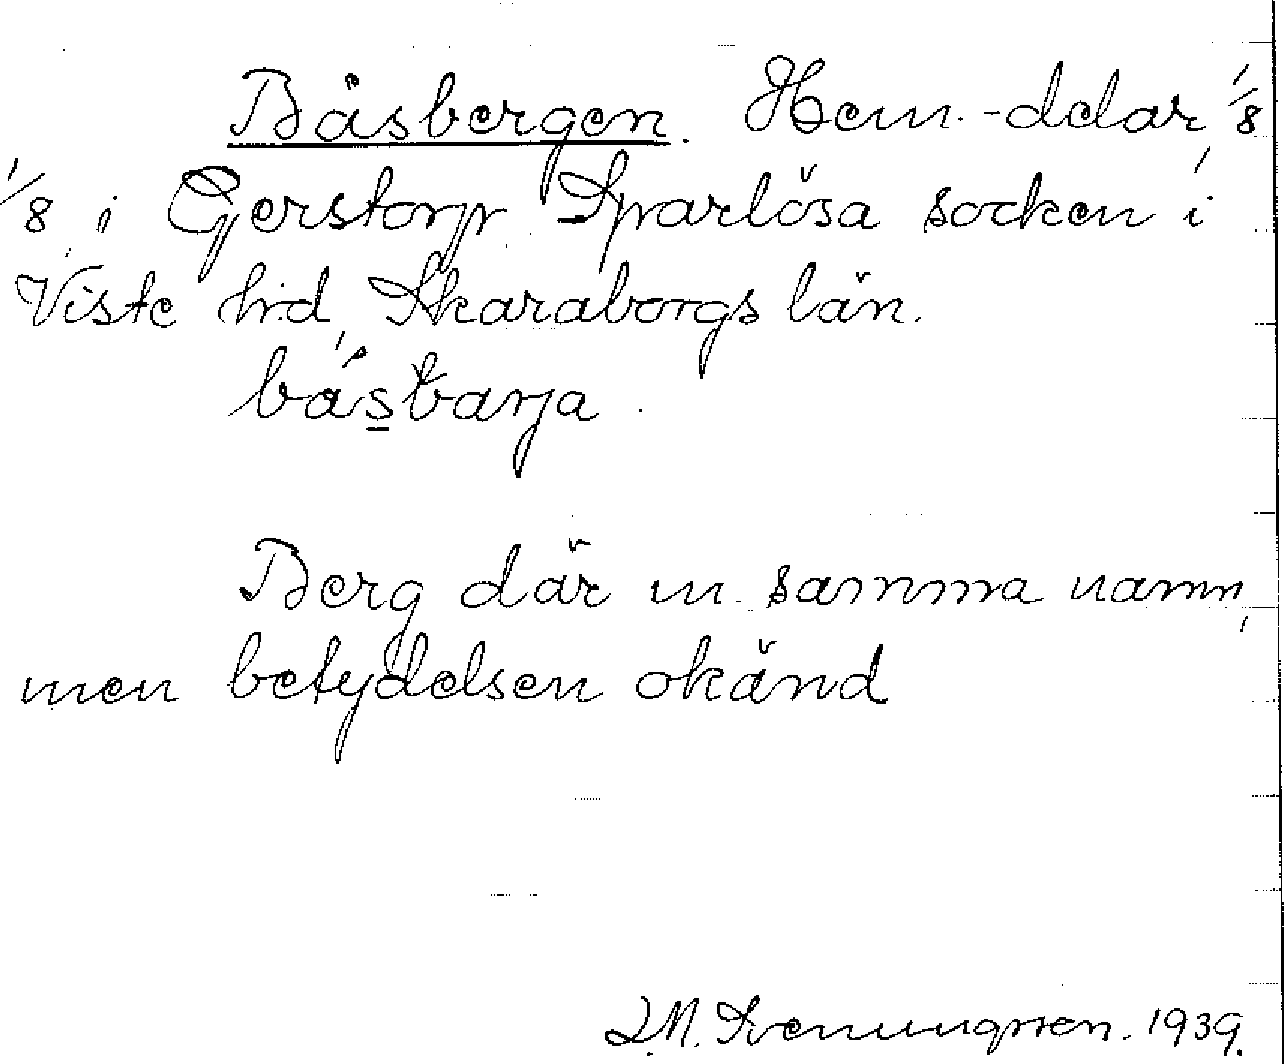 Båsbergen. Hem.-delar 1/8
1/8 i Gerstorp Sparlösa socken i
Viste hd, Skaraborgs län.
båsbarja.
Berg där m. samma namn,
men betydelsen okänd
J.M. Svenungsson. 1939.